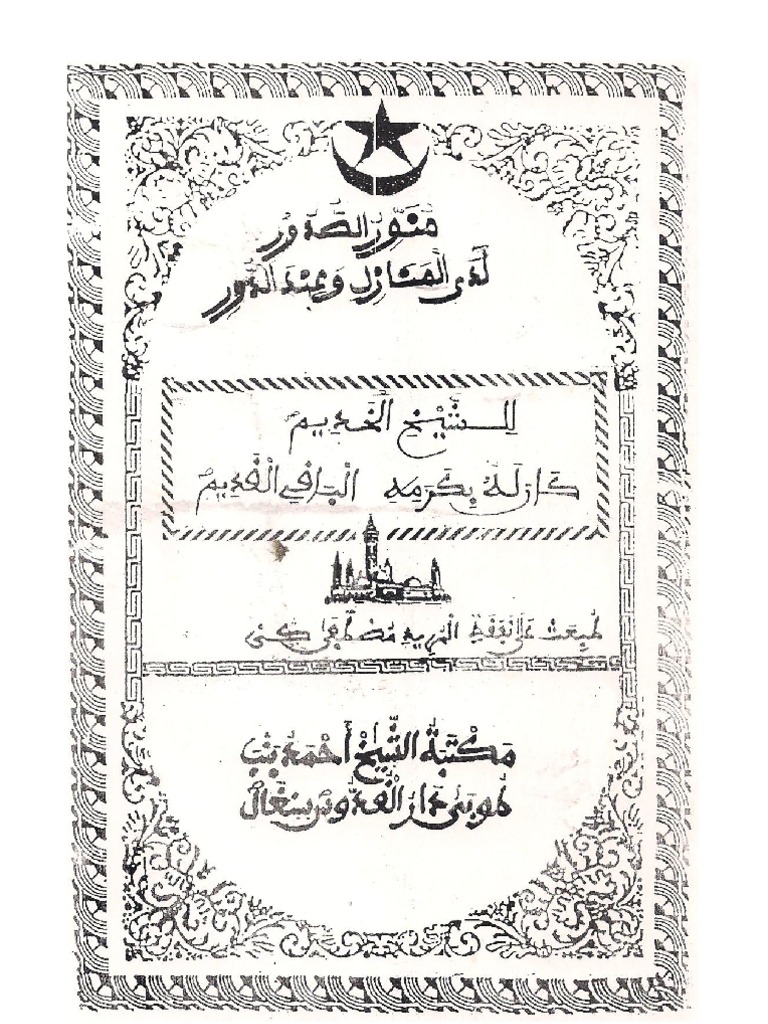 مُنَوِّرُ الصُّدُورْ
لَدَى الْمَنَازِلِ وَعِنْدَ الدُّورِ
لِلشَّيْخِ الْخَدِيمْ
كَانَ لَهُ بِكَرَمِهِ الْبَاقِي الْقَدِيمْ
طُبِعَتْ عَلَى نَفَقَةِ الْمُرِيدِ مُصْطَفَى
مَكْتَبَةُ الشَّيْخِ أَحْمَدُ بَنْبَ
طُوبَى دَارُ الْقُدُّوسِ سِنْغَالْ